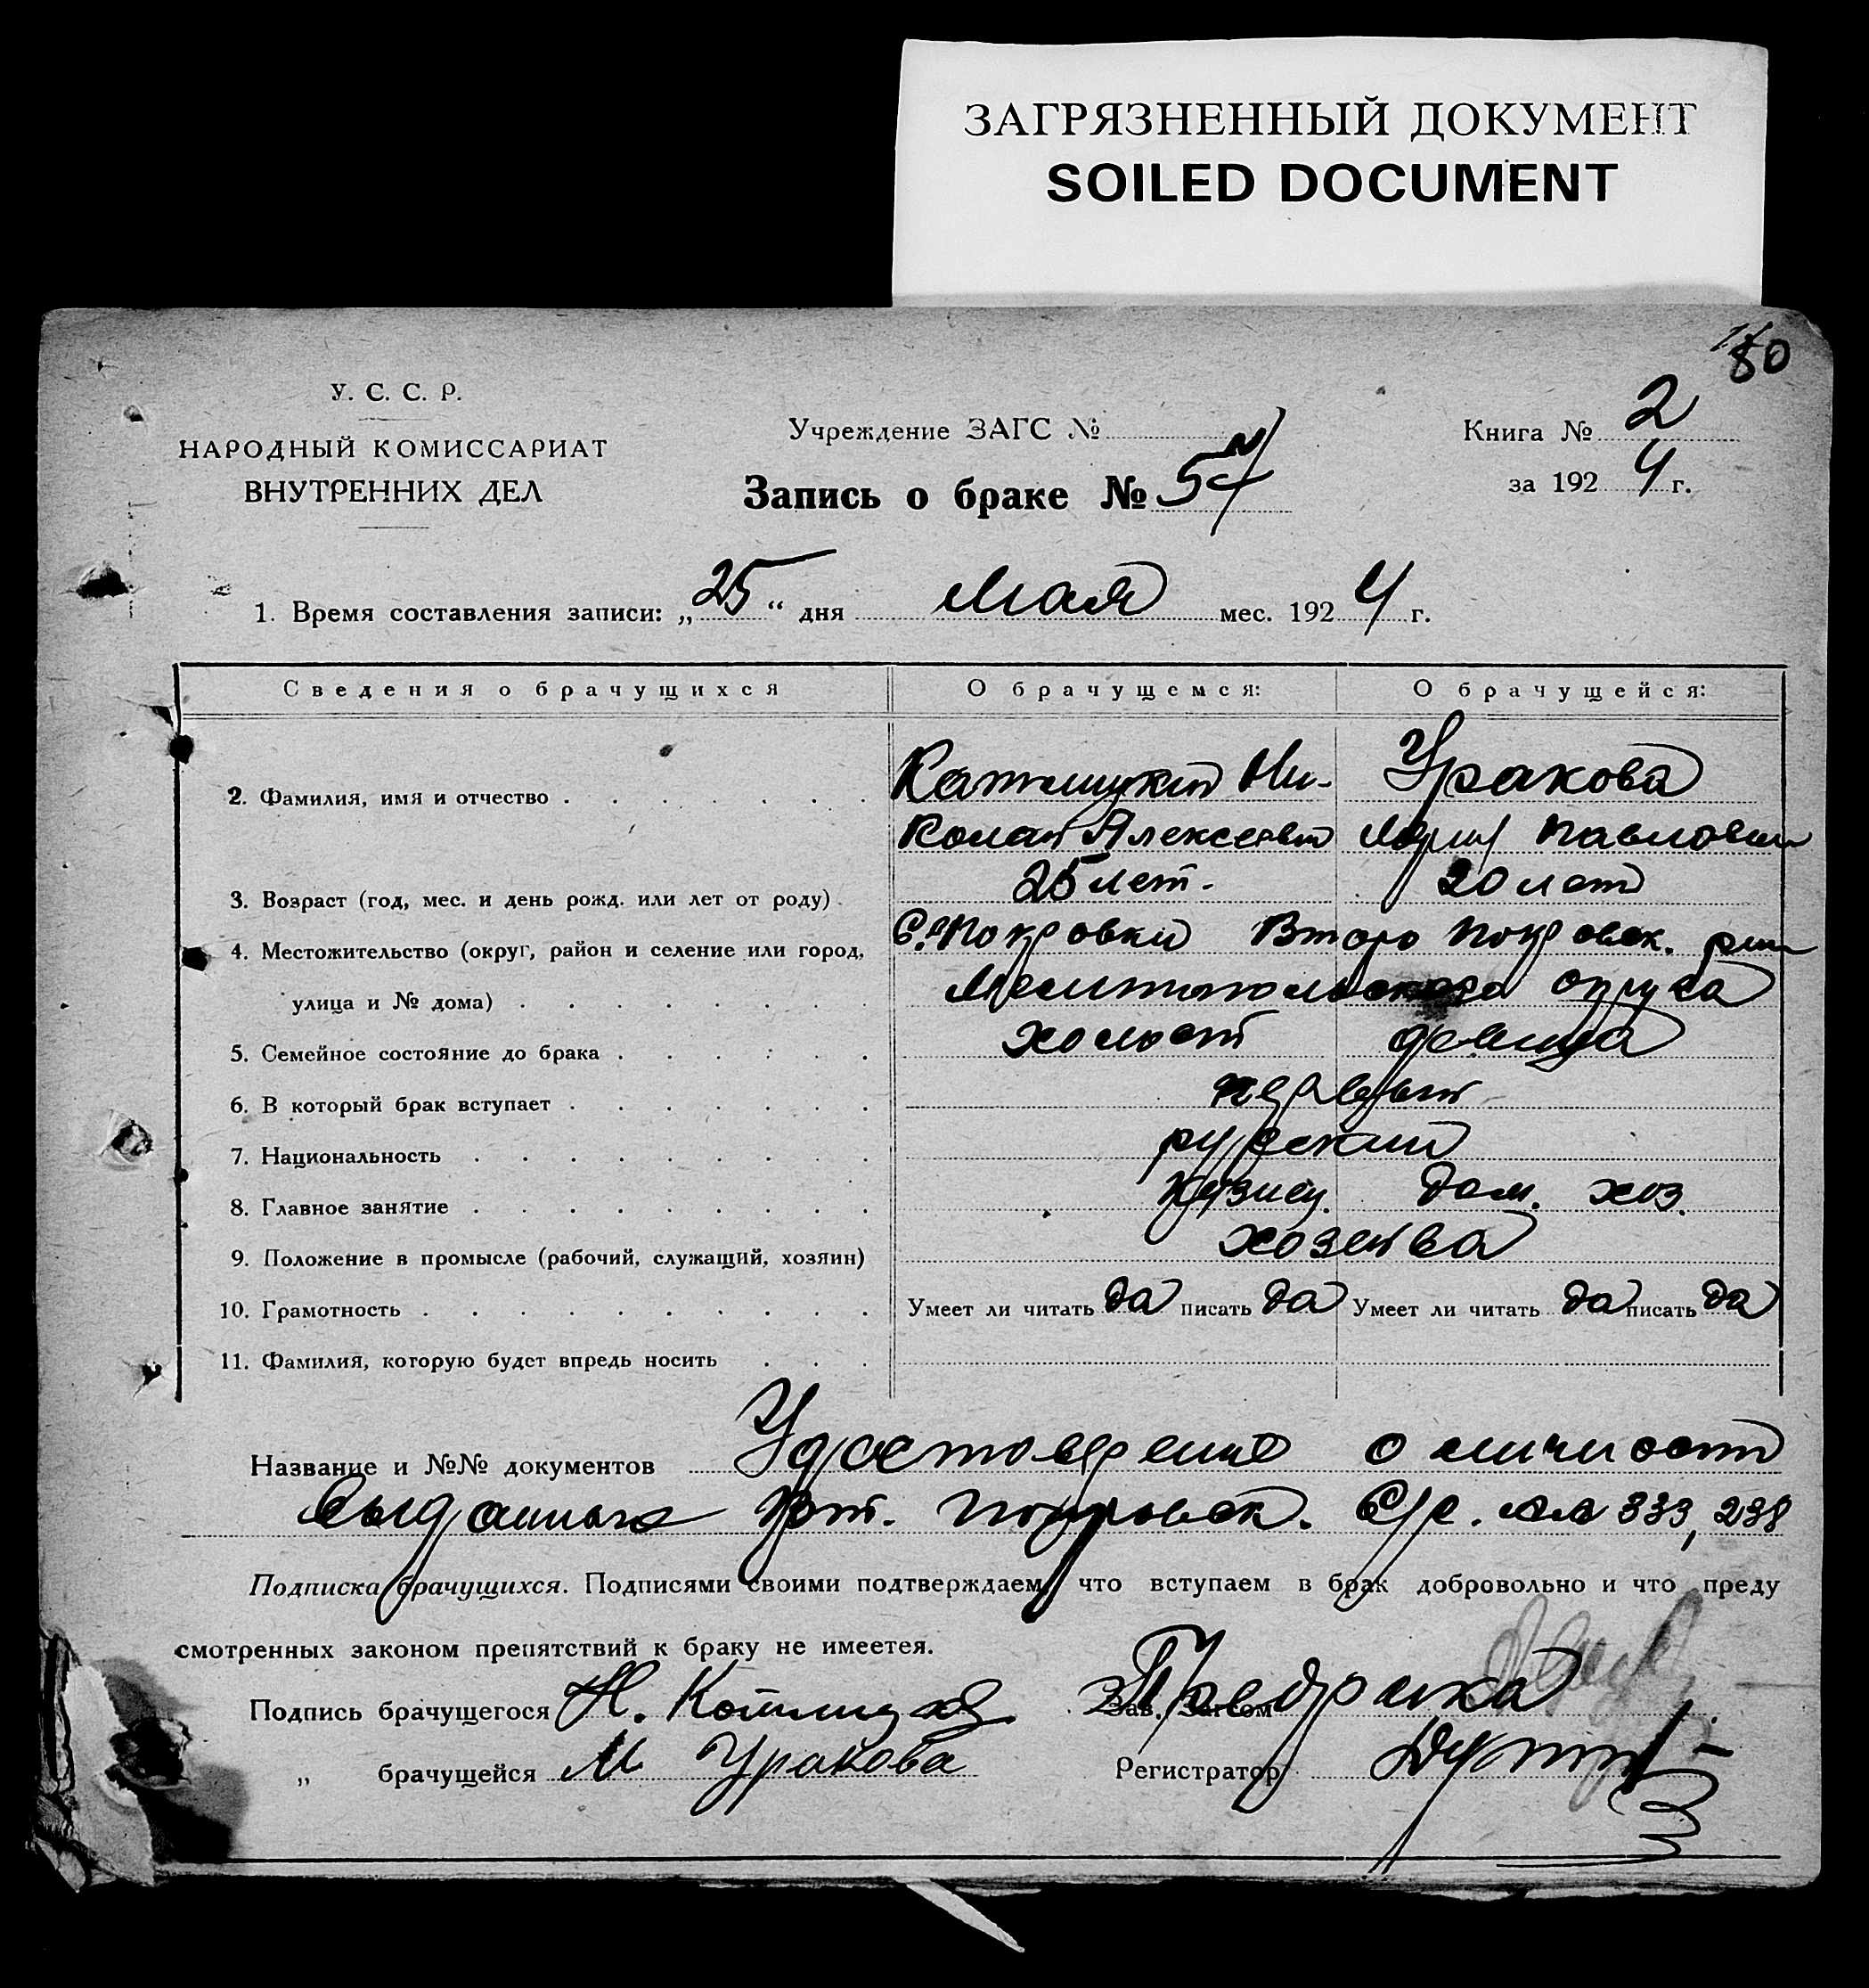 ЗАГРЯЗНЕННЫЙ ДОКУМЕНТ
SOILED DOCUMENT
80
У. С. С. Р.
НАРОДНЫЙ КОМИССАРИАТ
ВНУТРЕННИХ ДЕЛ
Учреждение ЗАГС №
Книга № 2
за 1924 г.
Запись о браке № 54
1. Время составления записи: „25“ дня Мая мес. 1924 г.
Сведения о брачущихся О брачущемся: О брачущейся:
2. Фамилия, имя и отчество Ни- Уракова
колай Алексеевич Мария Павловн
3. Возраст (год, мес. и день рожд. или лет от роду) 25 лет. 20 лет
4. Местожительство (округ, район и селение или город, С. Покровки Второ Покровск.
улица и № дома) Мелитопольского округа
5. Семейное состояние до брака холост девица
6. В который брак вступает первый
7. Национальность русский
8. Главное занятие Кузнец. дом. хоз.
9. Положение в промысле (рабочий, служащий, хозяин)
10. Грамотность Умеет ли читать да писать да Умеет ли читать да писать да
11. Фамилия, которую будет впредь носить
Название и №№ документов Удостоверение о личности
выданных Вт. Покровск. С/С. 333, 238
Подписка брачущихся. Подписями своими подтверждаем, что вступаем в брак добровольно и что преду
смотренных законом препятствий к браку не имеетея.
Подпись брачущегося Н. Зав. Загсом
„ брачущейся М Уракова Регистратор